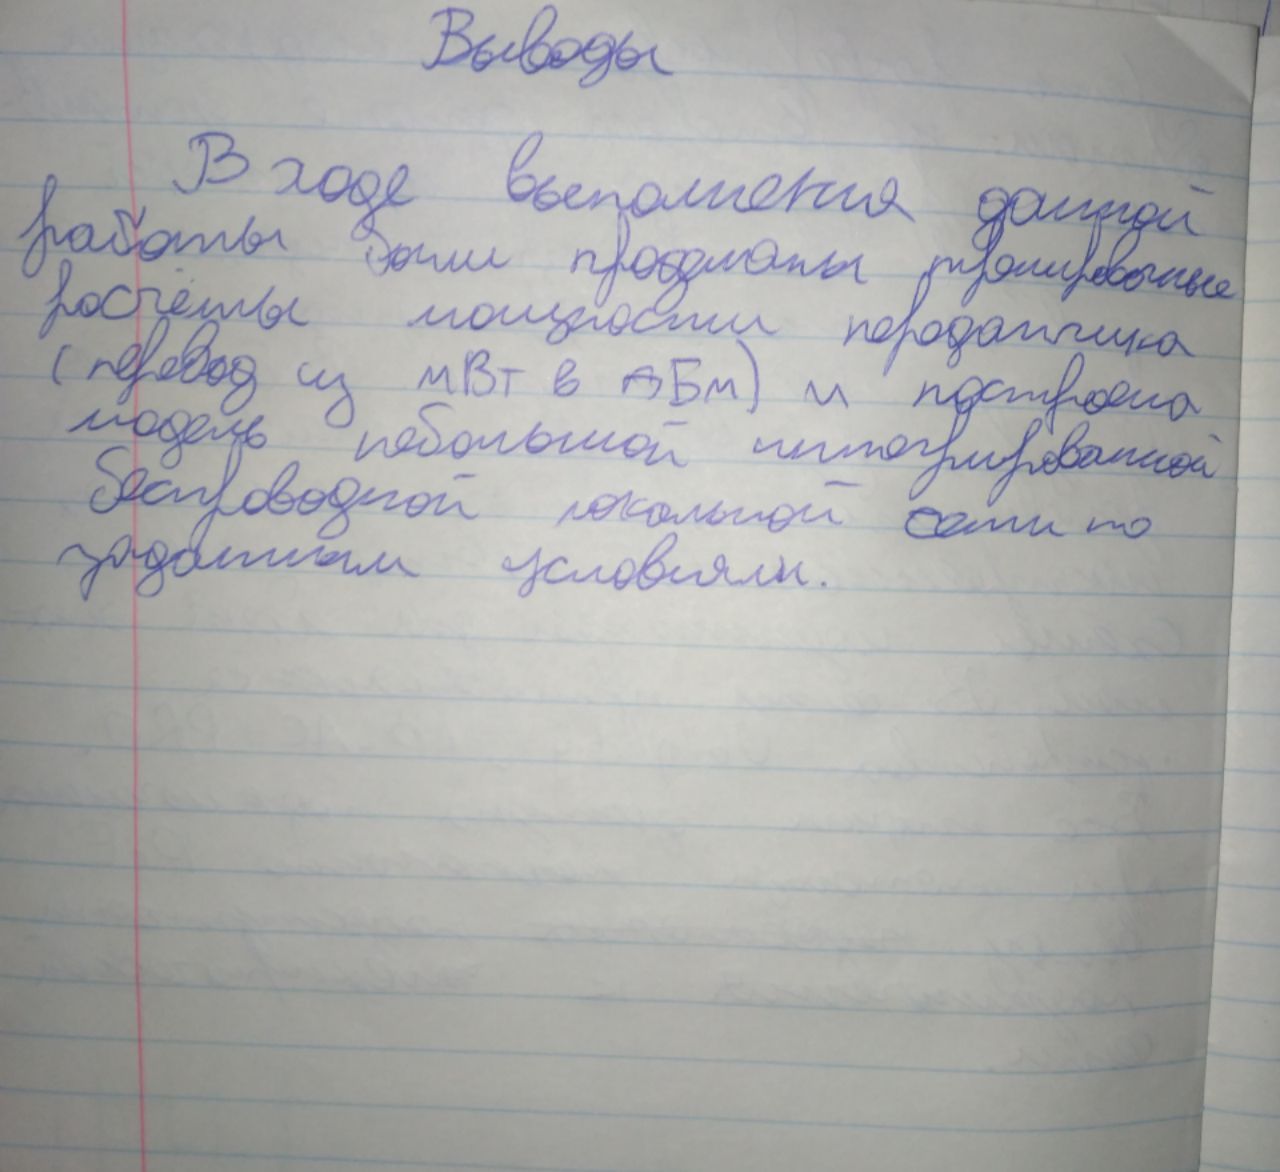 Выводы
В ходе выполнения данной
работы были проделаны тренировочные
расчёты мощности передатчика
(перевод из мВт в дБм) и построена
модель небольшой интегрированной
беспроводной локальной сети по
заданным условиям.